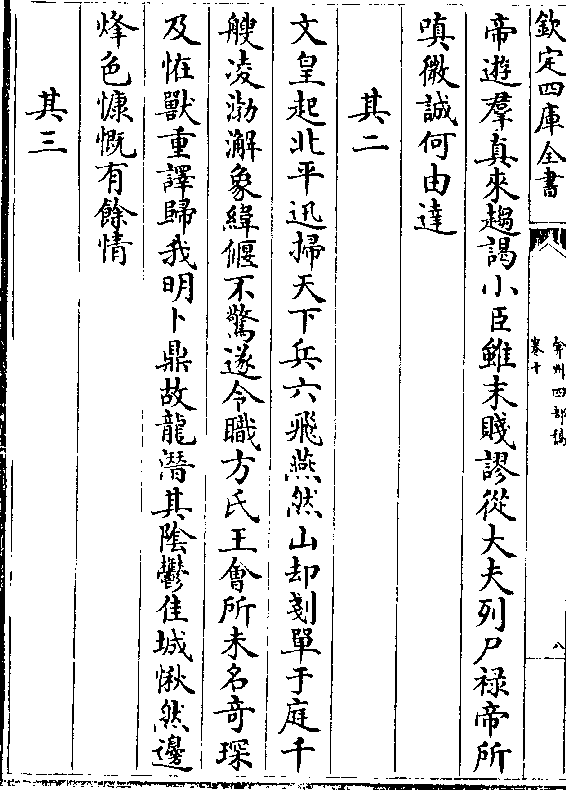 欽定四庫全書
弇州四部稿
卷十
八
帝遊羣真來趨謁小臣雖末賤謬從大夫列尸禄帝所
嗔微誠何由達
其二
文皇起北平迅掃天下兵六飛燕然山却刻單于庭千
艘凌渤澥象緯偃不驚遂令職方氏王會所未名奇琛
及恠獸重譯歸我明卜鼎故龍潛其隂鬱佳城愀然邊
烽色慷慨有餘情
其三